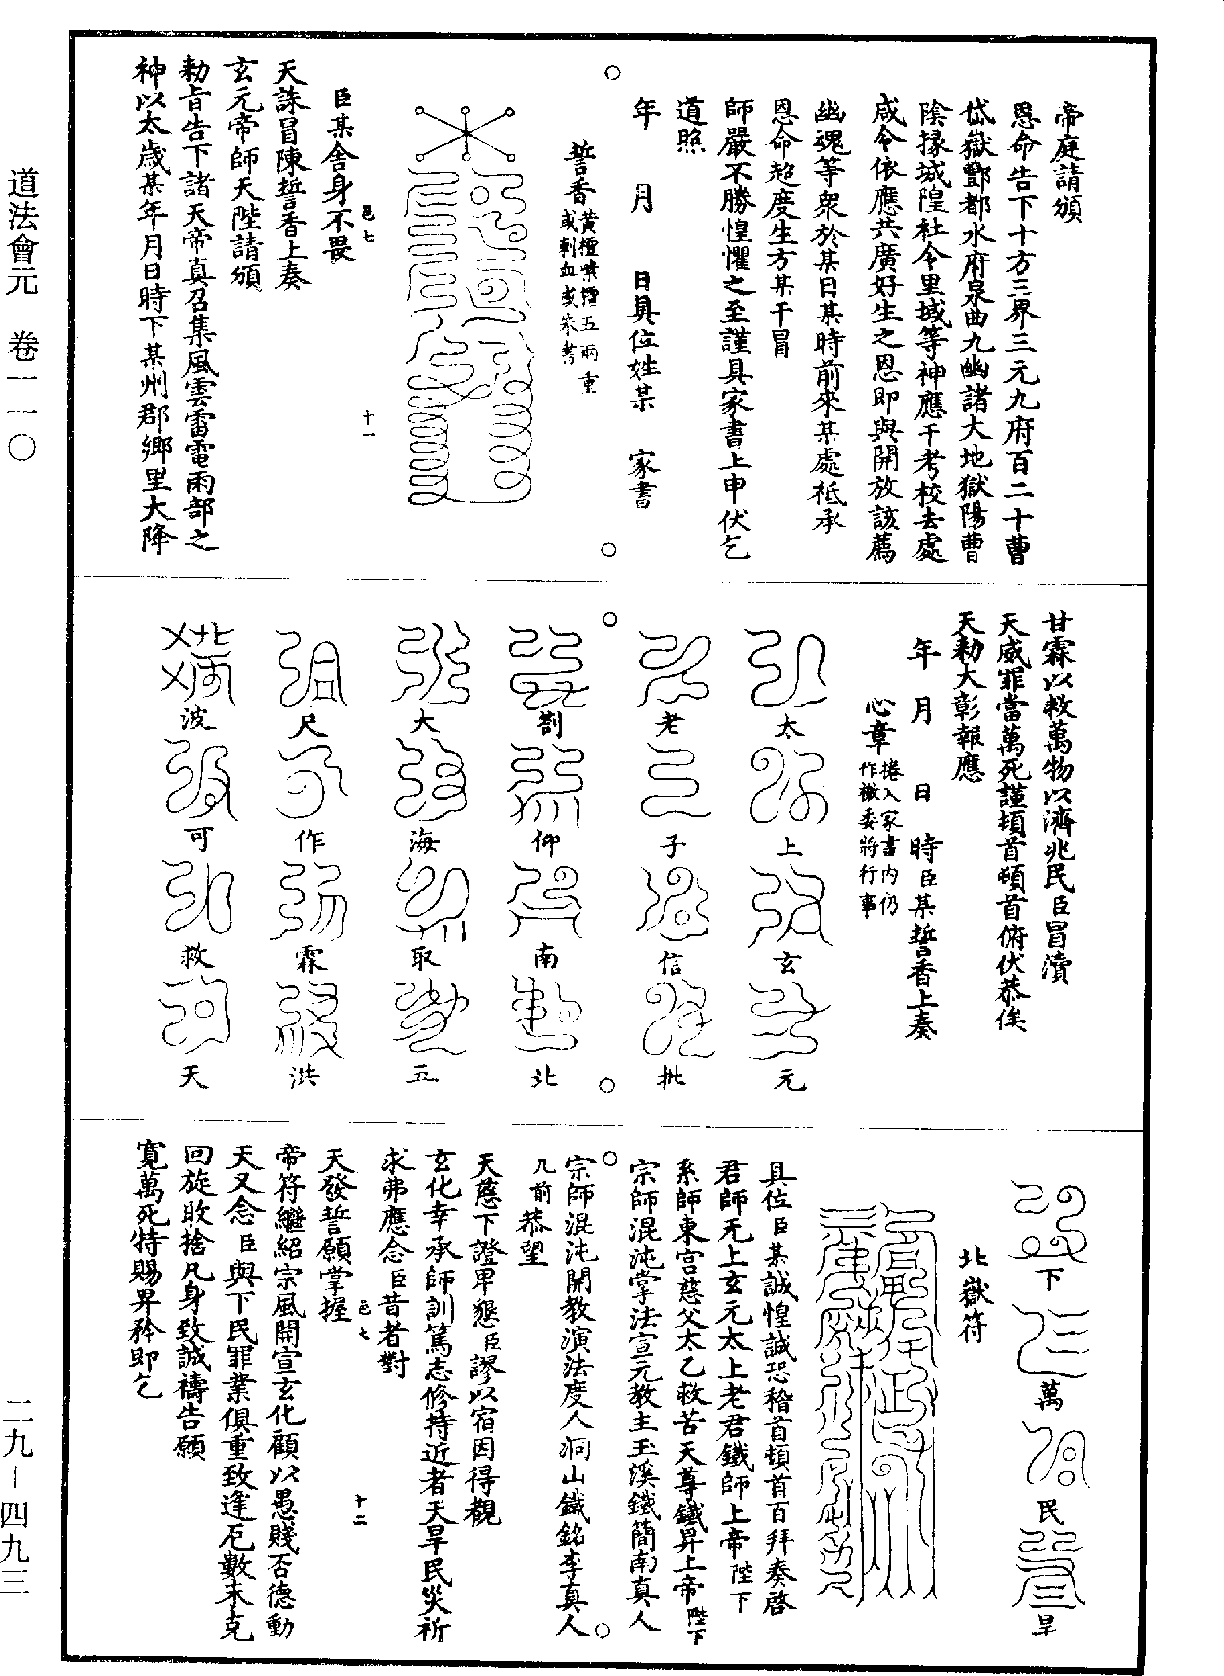 道法會元　卷一一〇
二九－四九三
帝庭請頒
恩命告下十方三界三元九府百二十曹
岱嶽酆都水府泉曲九幽諸大地獄陽曹
陰掾城隍社令里域等神應干考校去處
咸令依應共廣好生之恩即與開放該薦
幽魂等衆於某日某時前來某處祗承
恩命超度生方某干冒
師嚴不勝惶懼之至謹具家書上申伏乞
道照
年　月　日具位姓某　家書
誓香黃檀噀檀五兩重
或刺血或朱書
臣某舍身不畏
邑七　十一
天誅冒陳誓香上奏
玄元帝師天陛請頒
勑旨告下諸天帝真召集風雲雷電雨部之
神以太歲某年月日時下某州郡鄉里大降
甘霖以救萬物以濟兆民臣冒瀆
天威罪當萬死謹頓首頓首俯伏恭俟
天勑大彰報應
年　月　日　時臣某誓香上奏
心章捲入家書內仍
作檄委將行事
太上玄元
老子信批
劄仰南北
大海取五
尺作霖洪
波可救天
下萬民旱
北嶽符
具位臣某誠惶誠恐稽首頓首百拜奏啓
君師无上玄元太上老君鐵師上帝陛下
系師東宮慈父太乙救苦天尊鐵昇上帝陛下
宗師混沌掌法宣元教主玉溪鐵簡南真人
宗師混沌開教演法度人洞山鐵銘李真人
几前恭望
天慈下證卑懇臣謬以宿因得覩
玄化幸承師訓篤志修持近者天旱民災祈
求弗應念臣昔者對
天發誓願掌握
邑七　十二
帝符繼紹宗風開宣玄化顧以愚賤否德動
天又念臣與下民罪業俱重致逢厄數未克
回旋敢捨凡身致誠禱告願
寬萬死特賜畀矜即乞